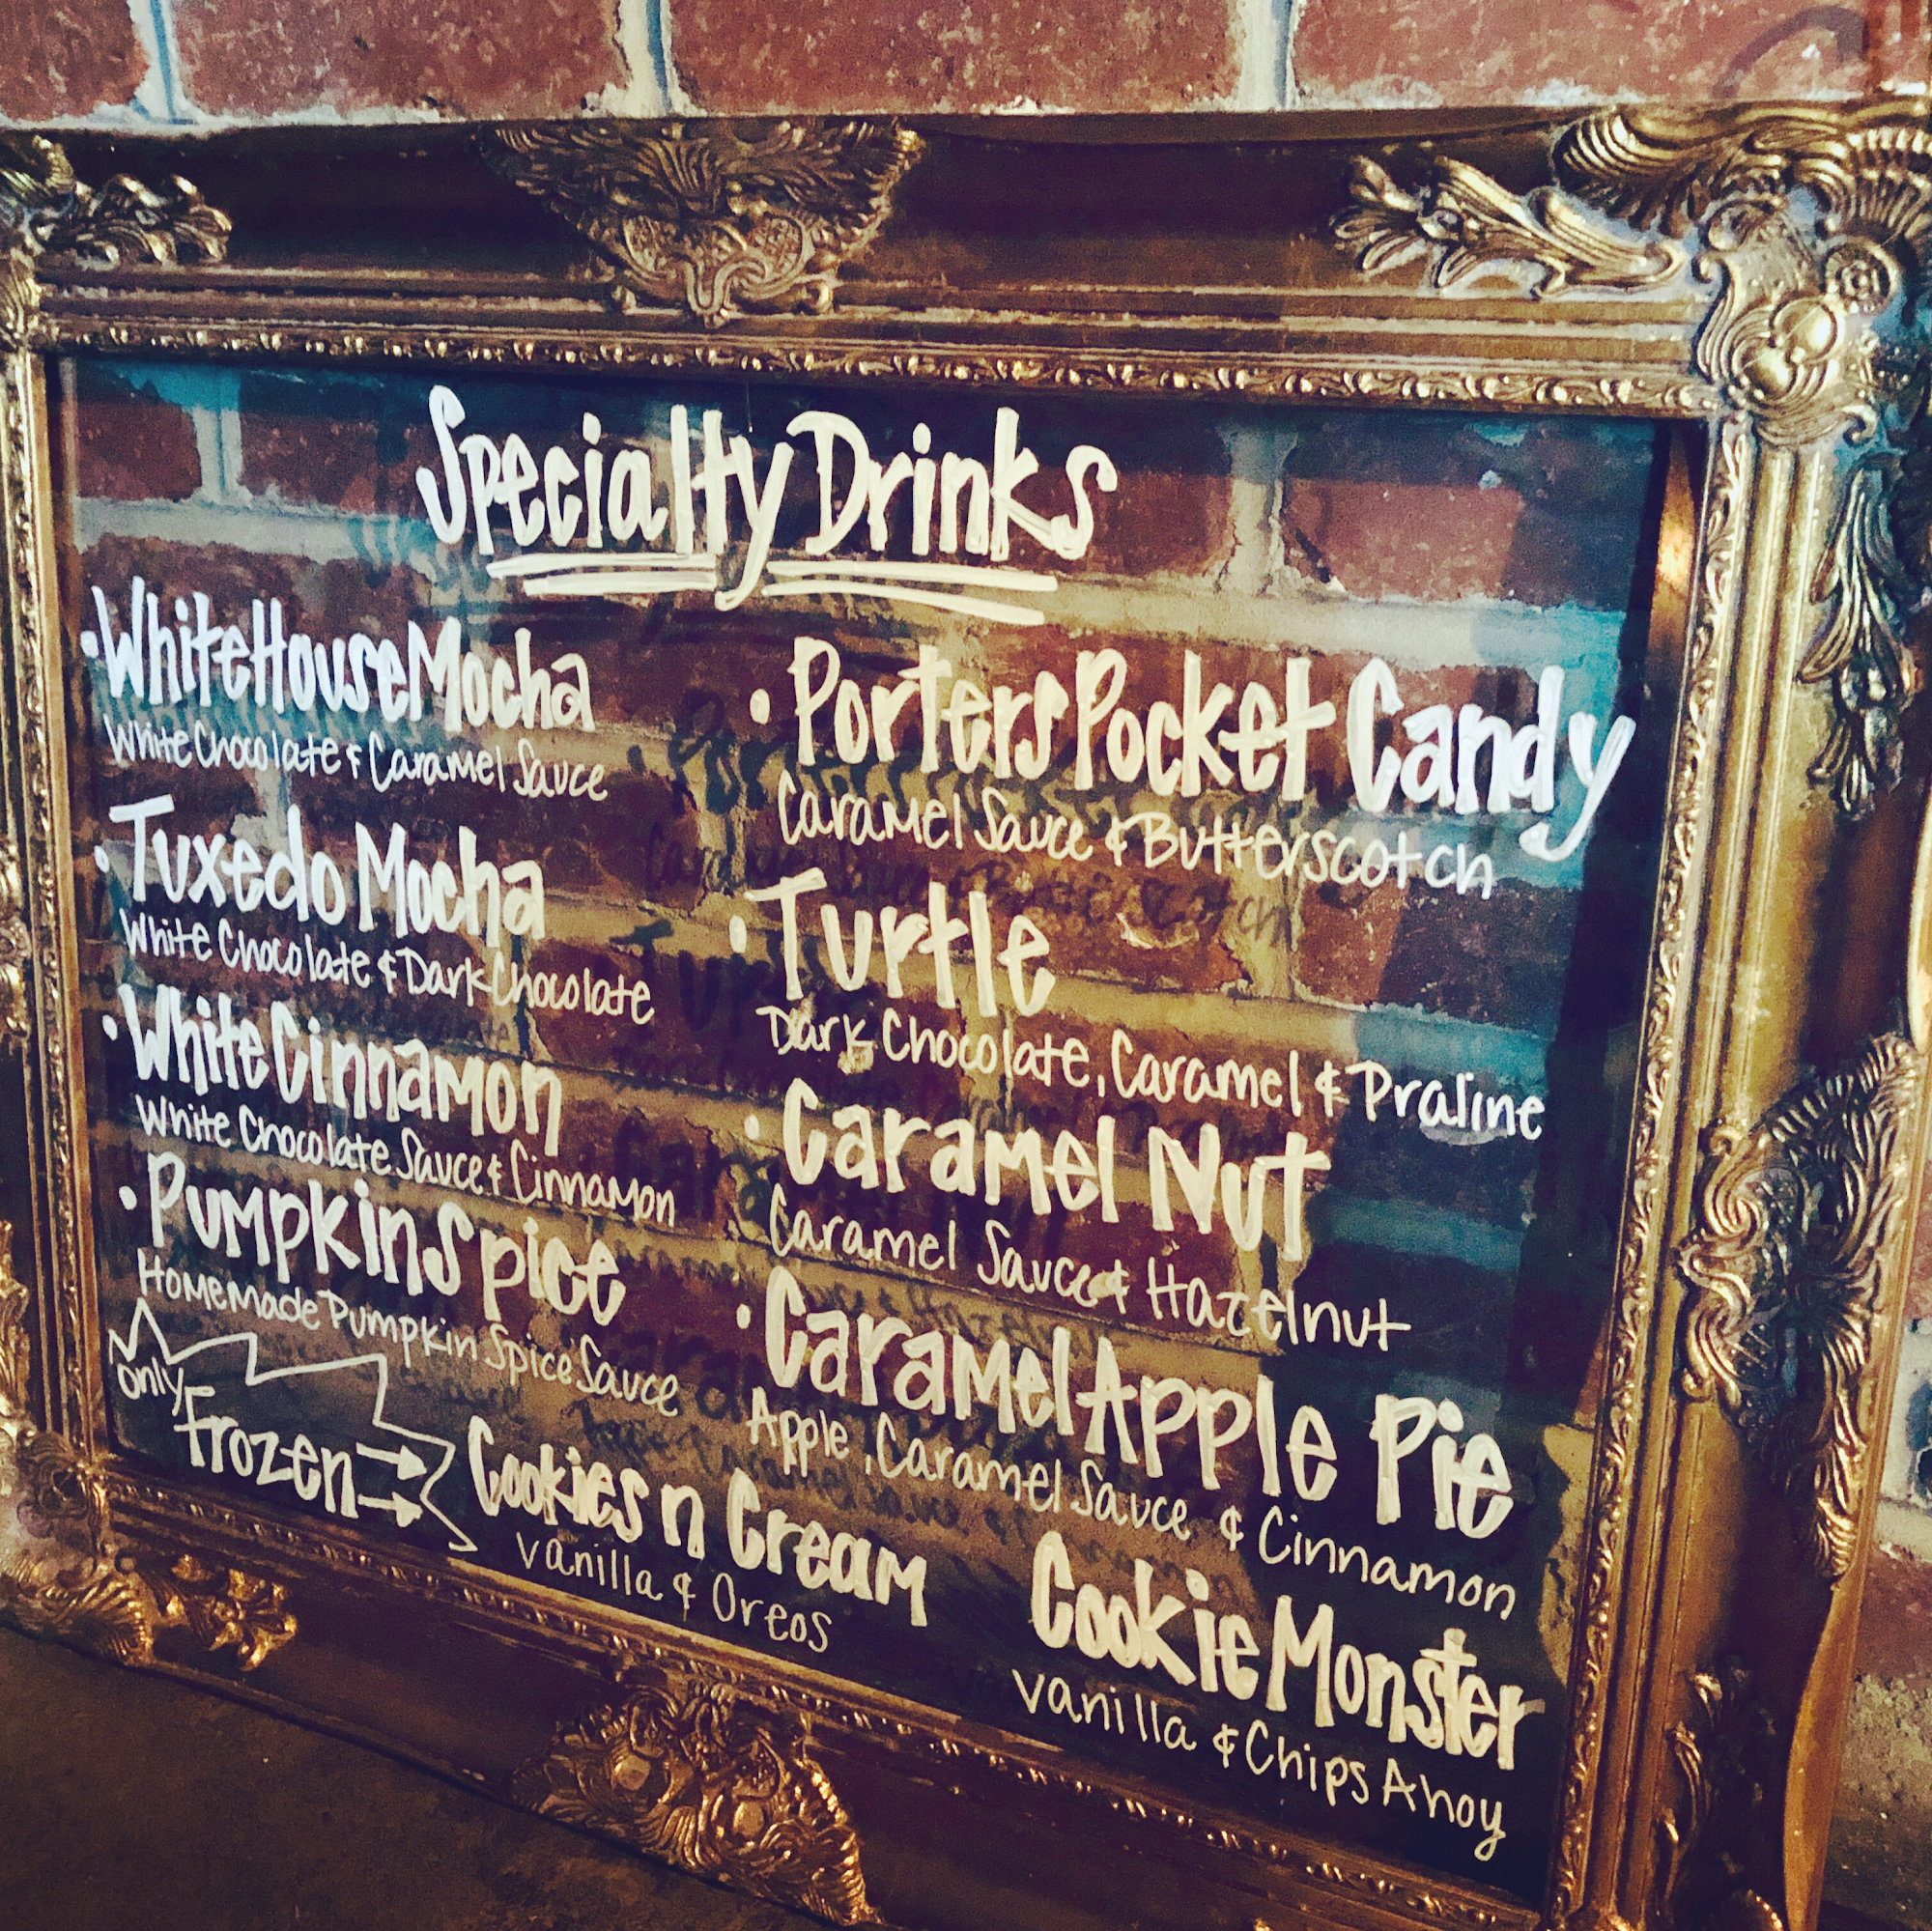 Specialty Drinks
• White House Mocha
White Chocolate & Caramel Sauce
• Tuxedo Mocha
White Chocolate & Dark Chocolate
• White Cinnamon
White Chocolate Sauce & Cinnamon
• Pumpkin Spice
Homemade Pumpkin Spice Sauce
• Porters Pocket Candy
Caramel Sauce & Butterscotch
• Turtle
Dark Chocolate, Caramel & Praline
• Caramel Nut
Caramel Sauce & Hazelnut
• Caramel Apple Pie
Apple, Caramel Sauce & Cinnamon
only
Frozen
Cookies n Cream
Vanilla & Oreos
Cookie Monster
Vanilla & Chips Ahoy